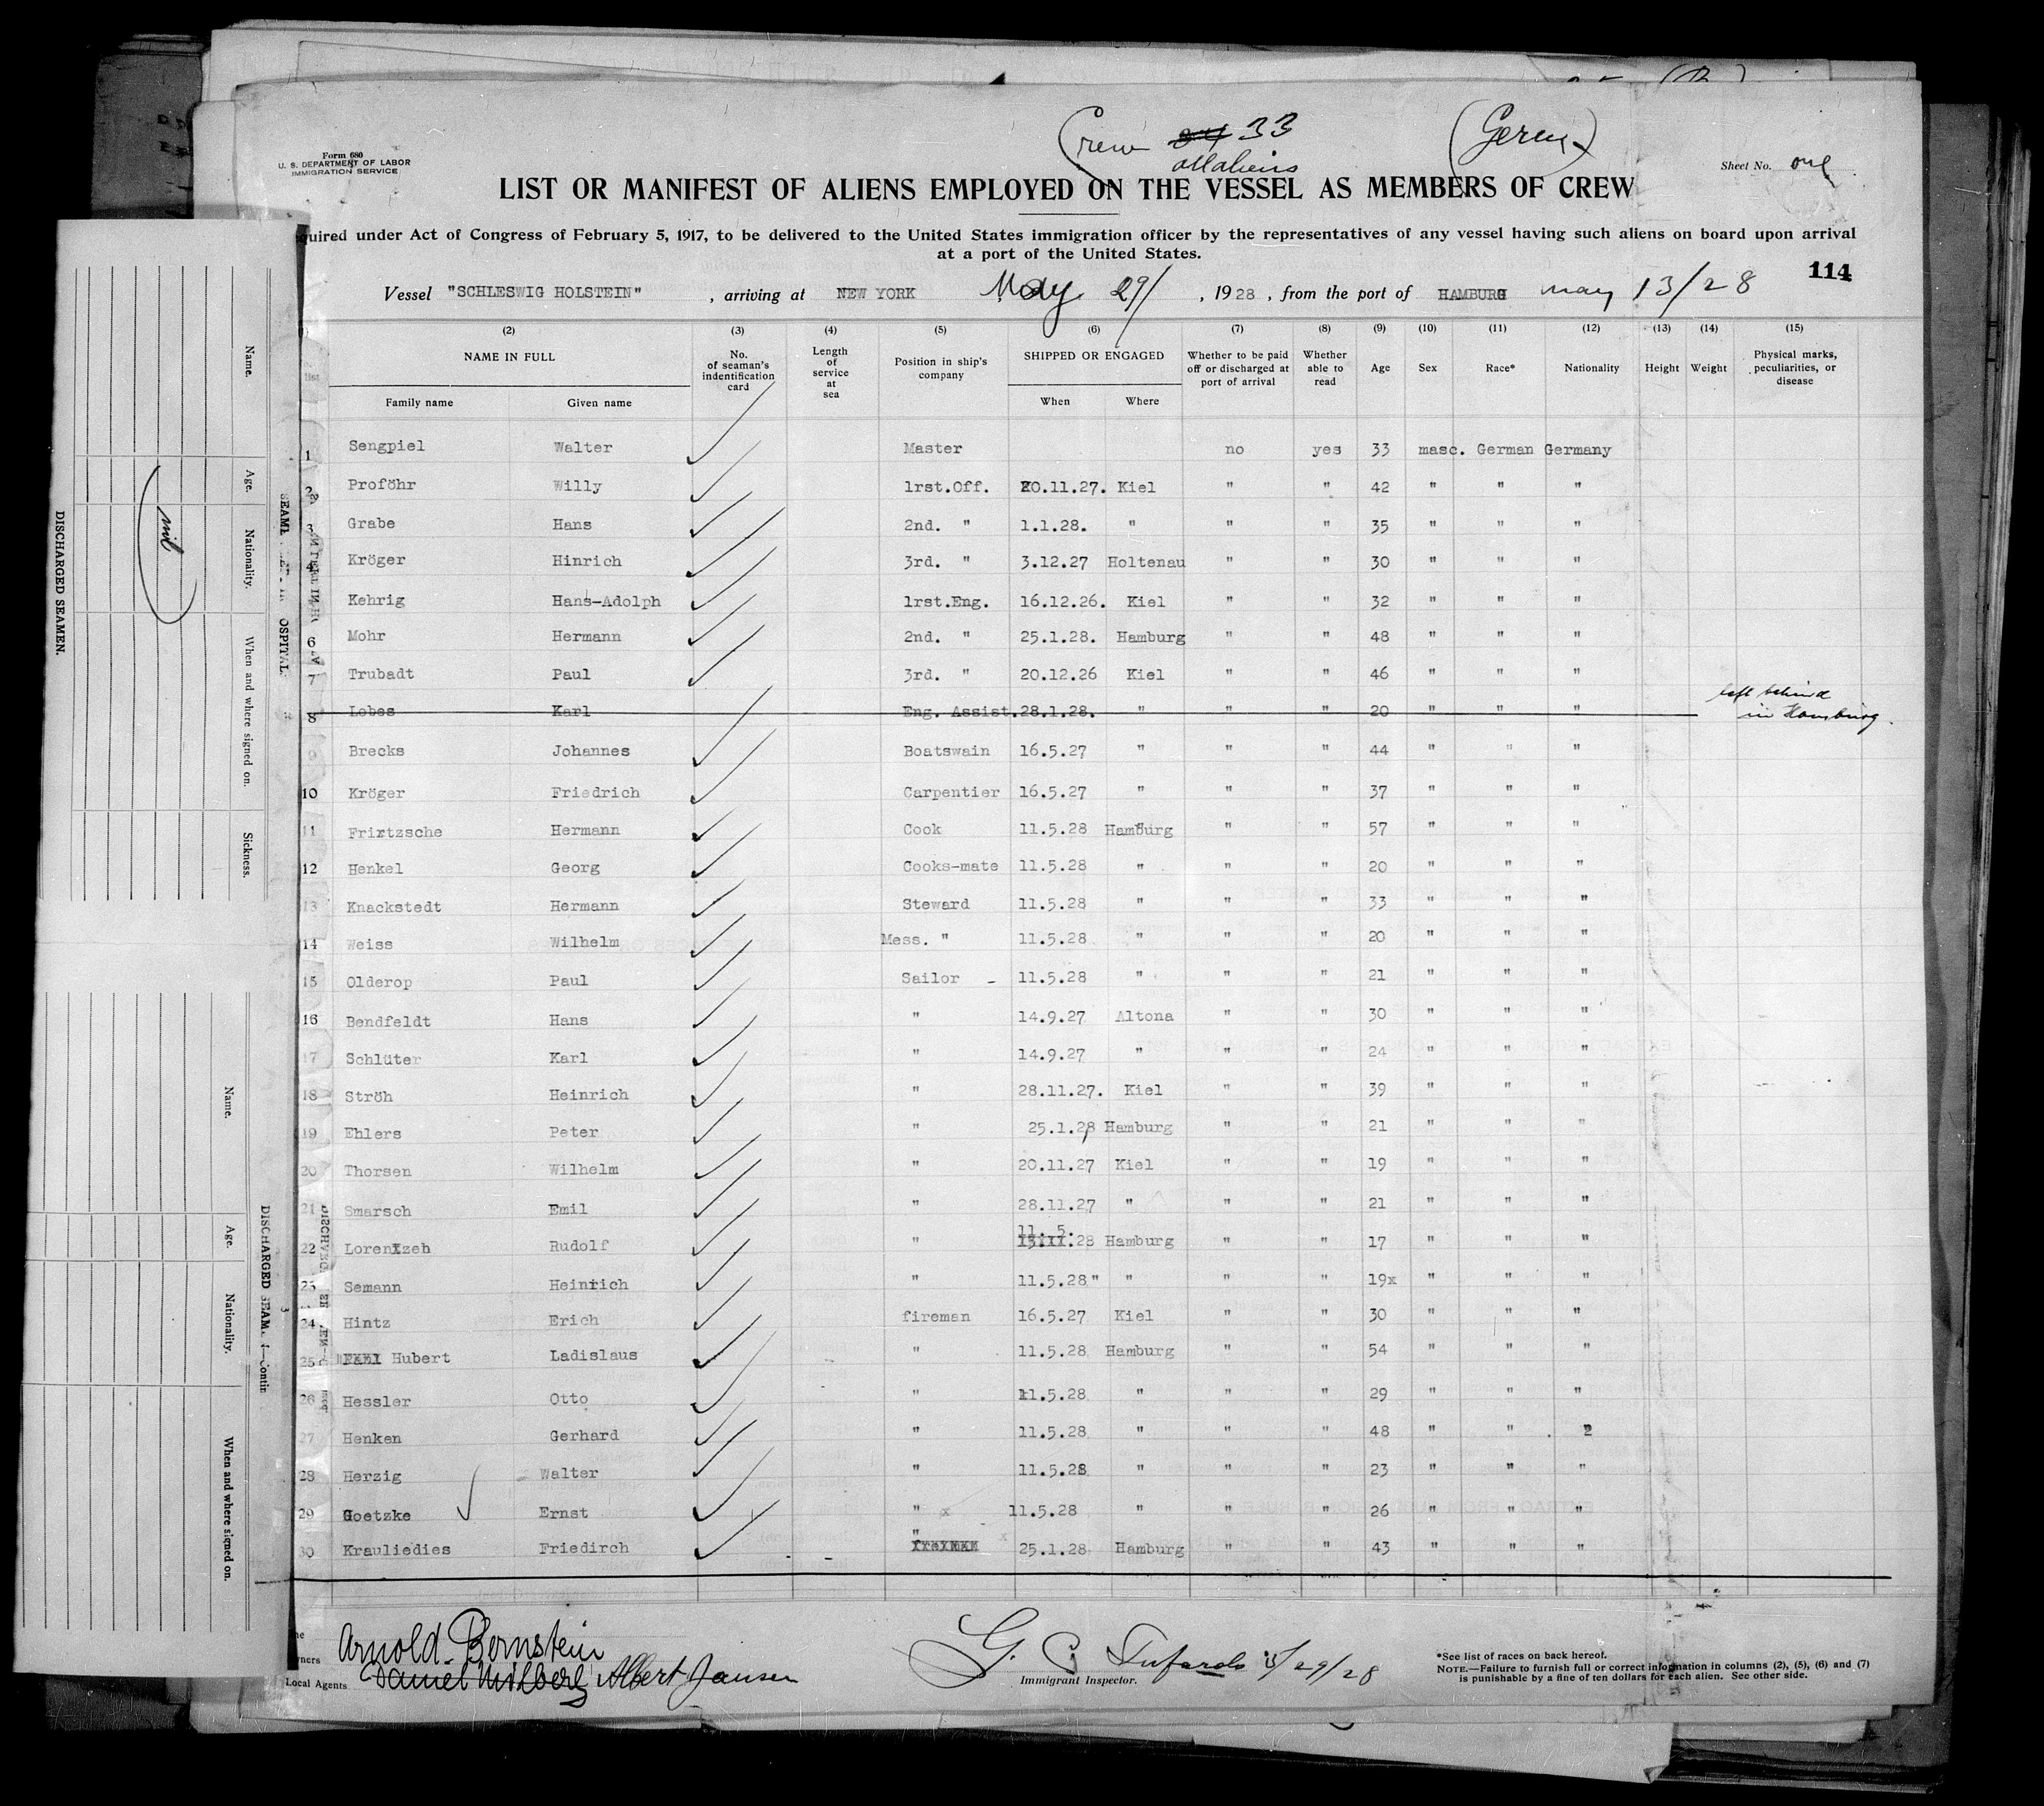 Crew 33
all aliens
(Germ)
Form 680
U. S. DEPARTMENT OF LABOR
IMMIGRATION SERVICE
Sheet No. one
LIST OR MANIFEST OF ALIENS EMPLOYED ON THE VESSEL AS MEMBERS OF CREW
quired under Act of Congress of February 5, 1917, to be delivered to the United States immigration officer by the representatives of any vessel having such aliens on board upon arrival
at a port of the United States.
114
Vessel "SCHLESWIG HOLSTEIN" , arriving at NEW YORK May 29/ , 1928 , from the port of HAMBURG may 13/28
(2) (3) (4) (5) (6) (7) (8) (9) (10) (11) (12) (13) (14) (15)
NAME IN FULL
Family name Given name
No. of seaman's indentification card
Length of service at sea
Position in ship's company
SHIPPED OR ENGAGED
When Where
Whether to be paid off or discharged at port of arrival
Whether able to read
Age Sex Race* Nationality Height Weight
Physical marks, peculiarities, or disease
1 Sengpiel Walter Master no yes 33 masc. German Germany
2 Proföhr Willy 1rst.Off. 20.11.27. Kiel " " 42 " " "
3 Grabe Hans 2nd. " 1.1.28. " " " 35 " " "
4 Kröger Hinrich 3rd. " 3.12.27 Holtenau " " 30 " " "
Kehrig Hans-Adolph 1rst.Eng. 16.12.26. Kiel " " 32 " " "
6 Mohr Hermann 2nd. " 25.1.28. Hamburg " " 48 " " "
7 Trubadt Paul 3rd. " 20.12.26 Kiel " " 46 " " "
8 Lobes Karl Eng. Assist. 28.1.28. " " " 20 " " " left behind in Hamburg.
9 Brecks Johannes Boatswain 16.5.27 " " " 44 " " "
10 Kröger Friedrich Carpentier 16.5.27 " " " 37 " " "
11 Frirtzsche Hermann Cook 11.5.28 Hamburg " " 57 " " "
12 Henkel Georg Cooks-mate 11.5.28 " " " 20 " " "
13 Knackstedt Hermann Steward 11.5.28 " " " 33 " " "
14 Weiss Wilhelm Mess. " 11.5.28 " " " 20 " " "
15 Olderop Paul Sailor - 11.5.28 " " " 21 " " "
16 Bendfeldt Hans " 14.9.27 Altona " " 30 " " "
17 Schlüter Karl " 14.9.27 " " " 24 " " "
18 Ströh Heinrich " 28.11.27. Kiel " " 39 " " "
19 Ehlers Peter " 25.1.28 Hamburg " " 21 " " "
20 Thorsen Wilhelm " 20.11.27 Kiel " " 19 " " "
21 Smarsch Emil " 28.11.27 " " " 21 " " "
22 Lorenxzeh Rudolf " 11. 5. 28 Hamburg " " 17 " " "
23 Semann Heinrich " 11.5.28 " " " " 19x " " "
24 Hintz Erich fireman 16.5.27 Kiel " " 30 " " "
25 Hubert Ladislaus " 11.5.28 Hamburg " " 54 " " "
26 Hessler Otto " 11.5.28 " " " 29 " " "
27 Henken Gerhard " 11.5.28 " " " 48 " " "
28 Herzig Walter " 11.5.28 " " " 23 " " "
29 Goetzke Ernst " x 11.5.28 " " " 26 " " "
30 Krauliedies Friedirch " 25.1.28 Hamburg " " 43 " " "
Arnold Bernstein
wners
Local Agents Daniel Milberg Albert Jansen
G. C. 5/29/28
Immigrant Inspector.
*See list of races on back hereof.
NOTE.—Failure to furnish full or correct information in columns (2), (5), (6) and (7)
is punishable by a fine of ten dollars for each alien. See other side.
DISCHARGED SEAMEN.
Name. Age. Nationality. When and where signed on. Sickness.
nil
Name. Age. Nationality. When and where signed on.